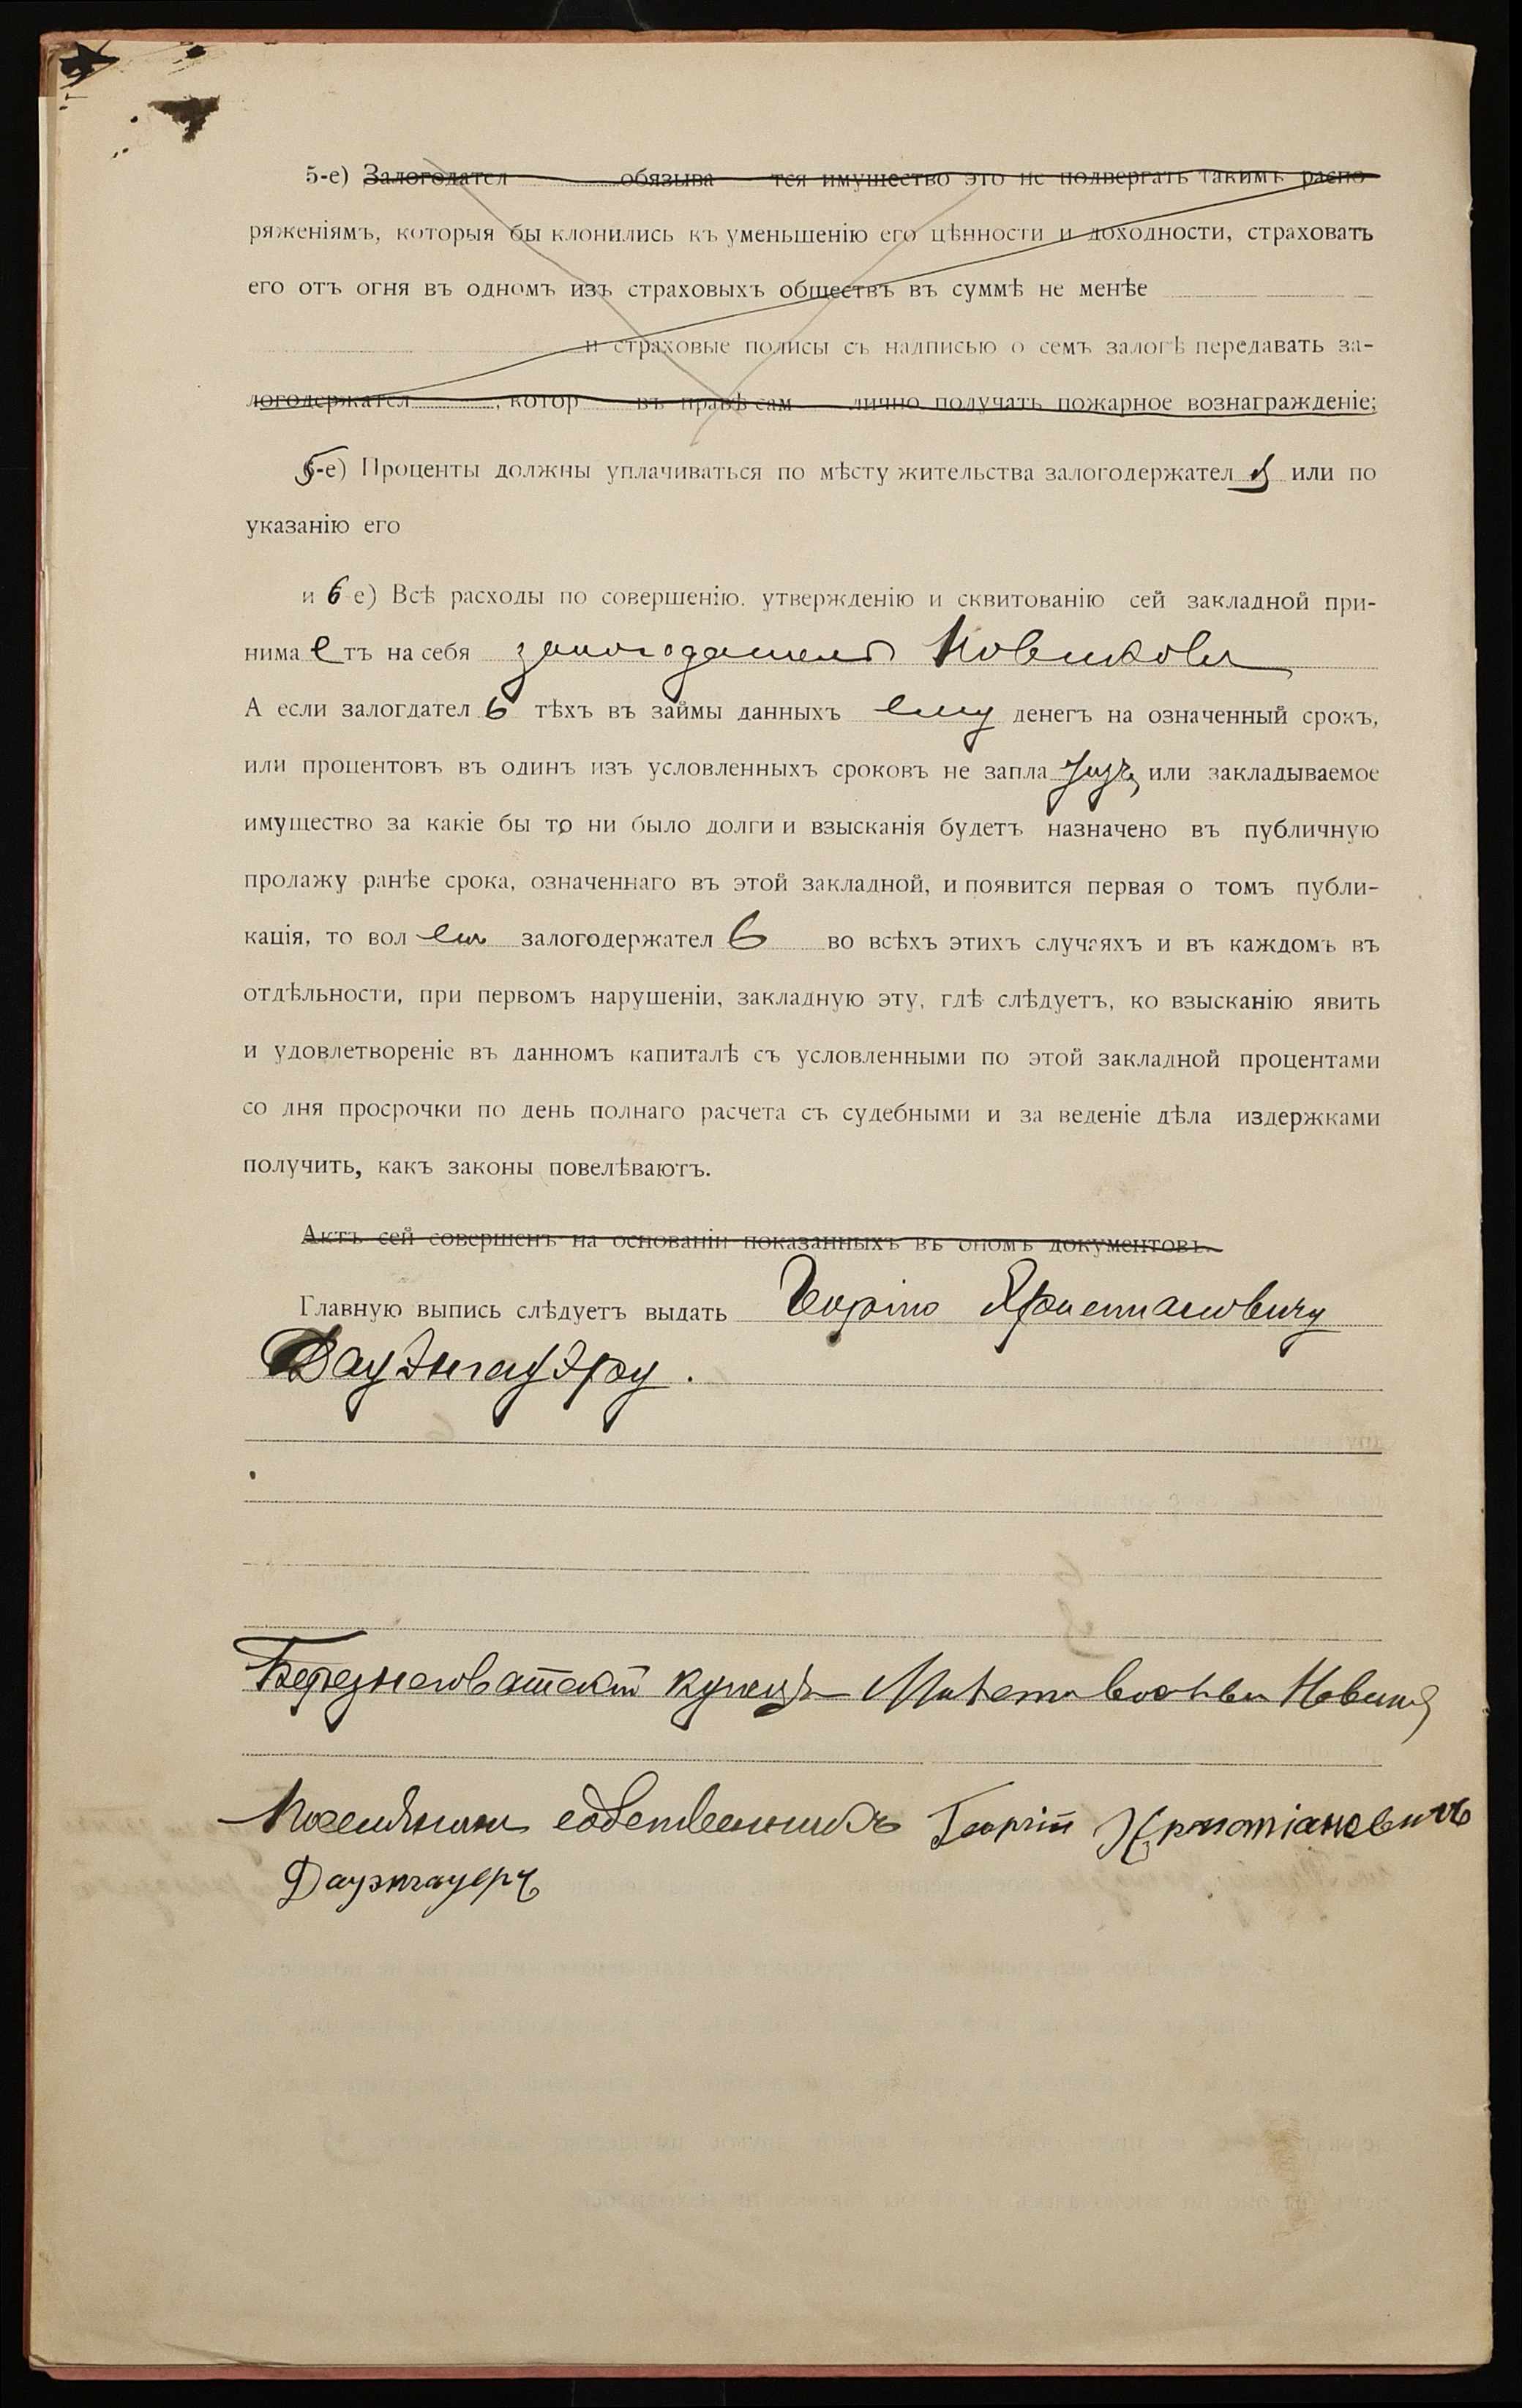 5-е) Залогодател обязыва тся имущество это не подвергать такимъ распо-
ряженіямъ, которыя бы клонились къ уменьшенію его цѣнности и доходности, страховать
его отъ огня въ одномъ изъ страховыхъ обществъ въ суммѣ не менѣе
и страховые полисы съ надписью о семъ залогѣ передавать за-
логодержател , котор въ правѣ сам лично получать пожарное вознагражденіе;
5-е) Проценты должны уплачиваться по мѣсту жительства залогодержателя или по
указанію его
и 6 е) Всѣ расходы по совершенію, утвержденію и сквитованію сей закладной при-
нимаетъ на себя залогодатель Новиковъ
А если залогдатель тѣхъ въ займы данныхъ ему денегъ на означенный срокъ,
или процентовъ въ одинъ изъ условленныхъ сроковъ не запла или закладываемое
имущество за какіе бы то ни было долги и взысканія будетъ назначено въ публичную
продажу ранѣе срока, означеннаго въ этой закладной, и появится первая о томъ публи-
кація, то воленъ залогодержатель во всѣхъ этихъ случаяхъ и въ каждомъ въ
отдѣльности, при первомъ нарушеніи, закладную эту, гдѣ слѣдуетъ, ко взысканію явить
и удовлетвореніе въ данномъ капиталѣ съ условленными по этой закладной процентами
со дня просрочки по день полнаго расчета съ судебными и за веденіе дѣла издержками
получить, какъ законы повелѣваютъ.
Актъ сей совершенъ на основаніи показанныхъ въ ономъ документовъ.
Главную выпись слѣдуетъ выдать Георгію Христіановичу
Дауэнгауэру.
Березнеговатскій купецъ Новиковъ
Поселянинъ собственникъ Георгій Христіановичъ
Дауэнгауеръ